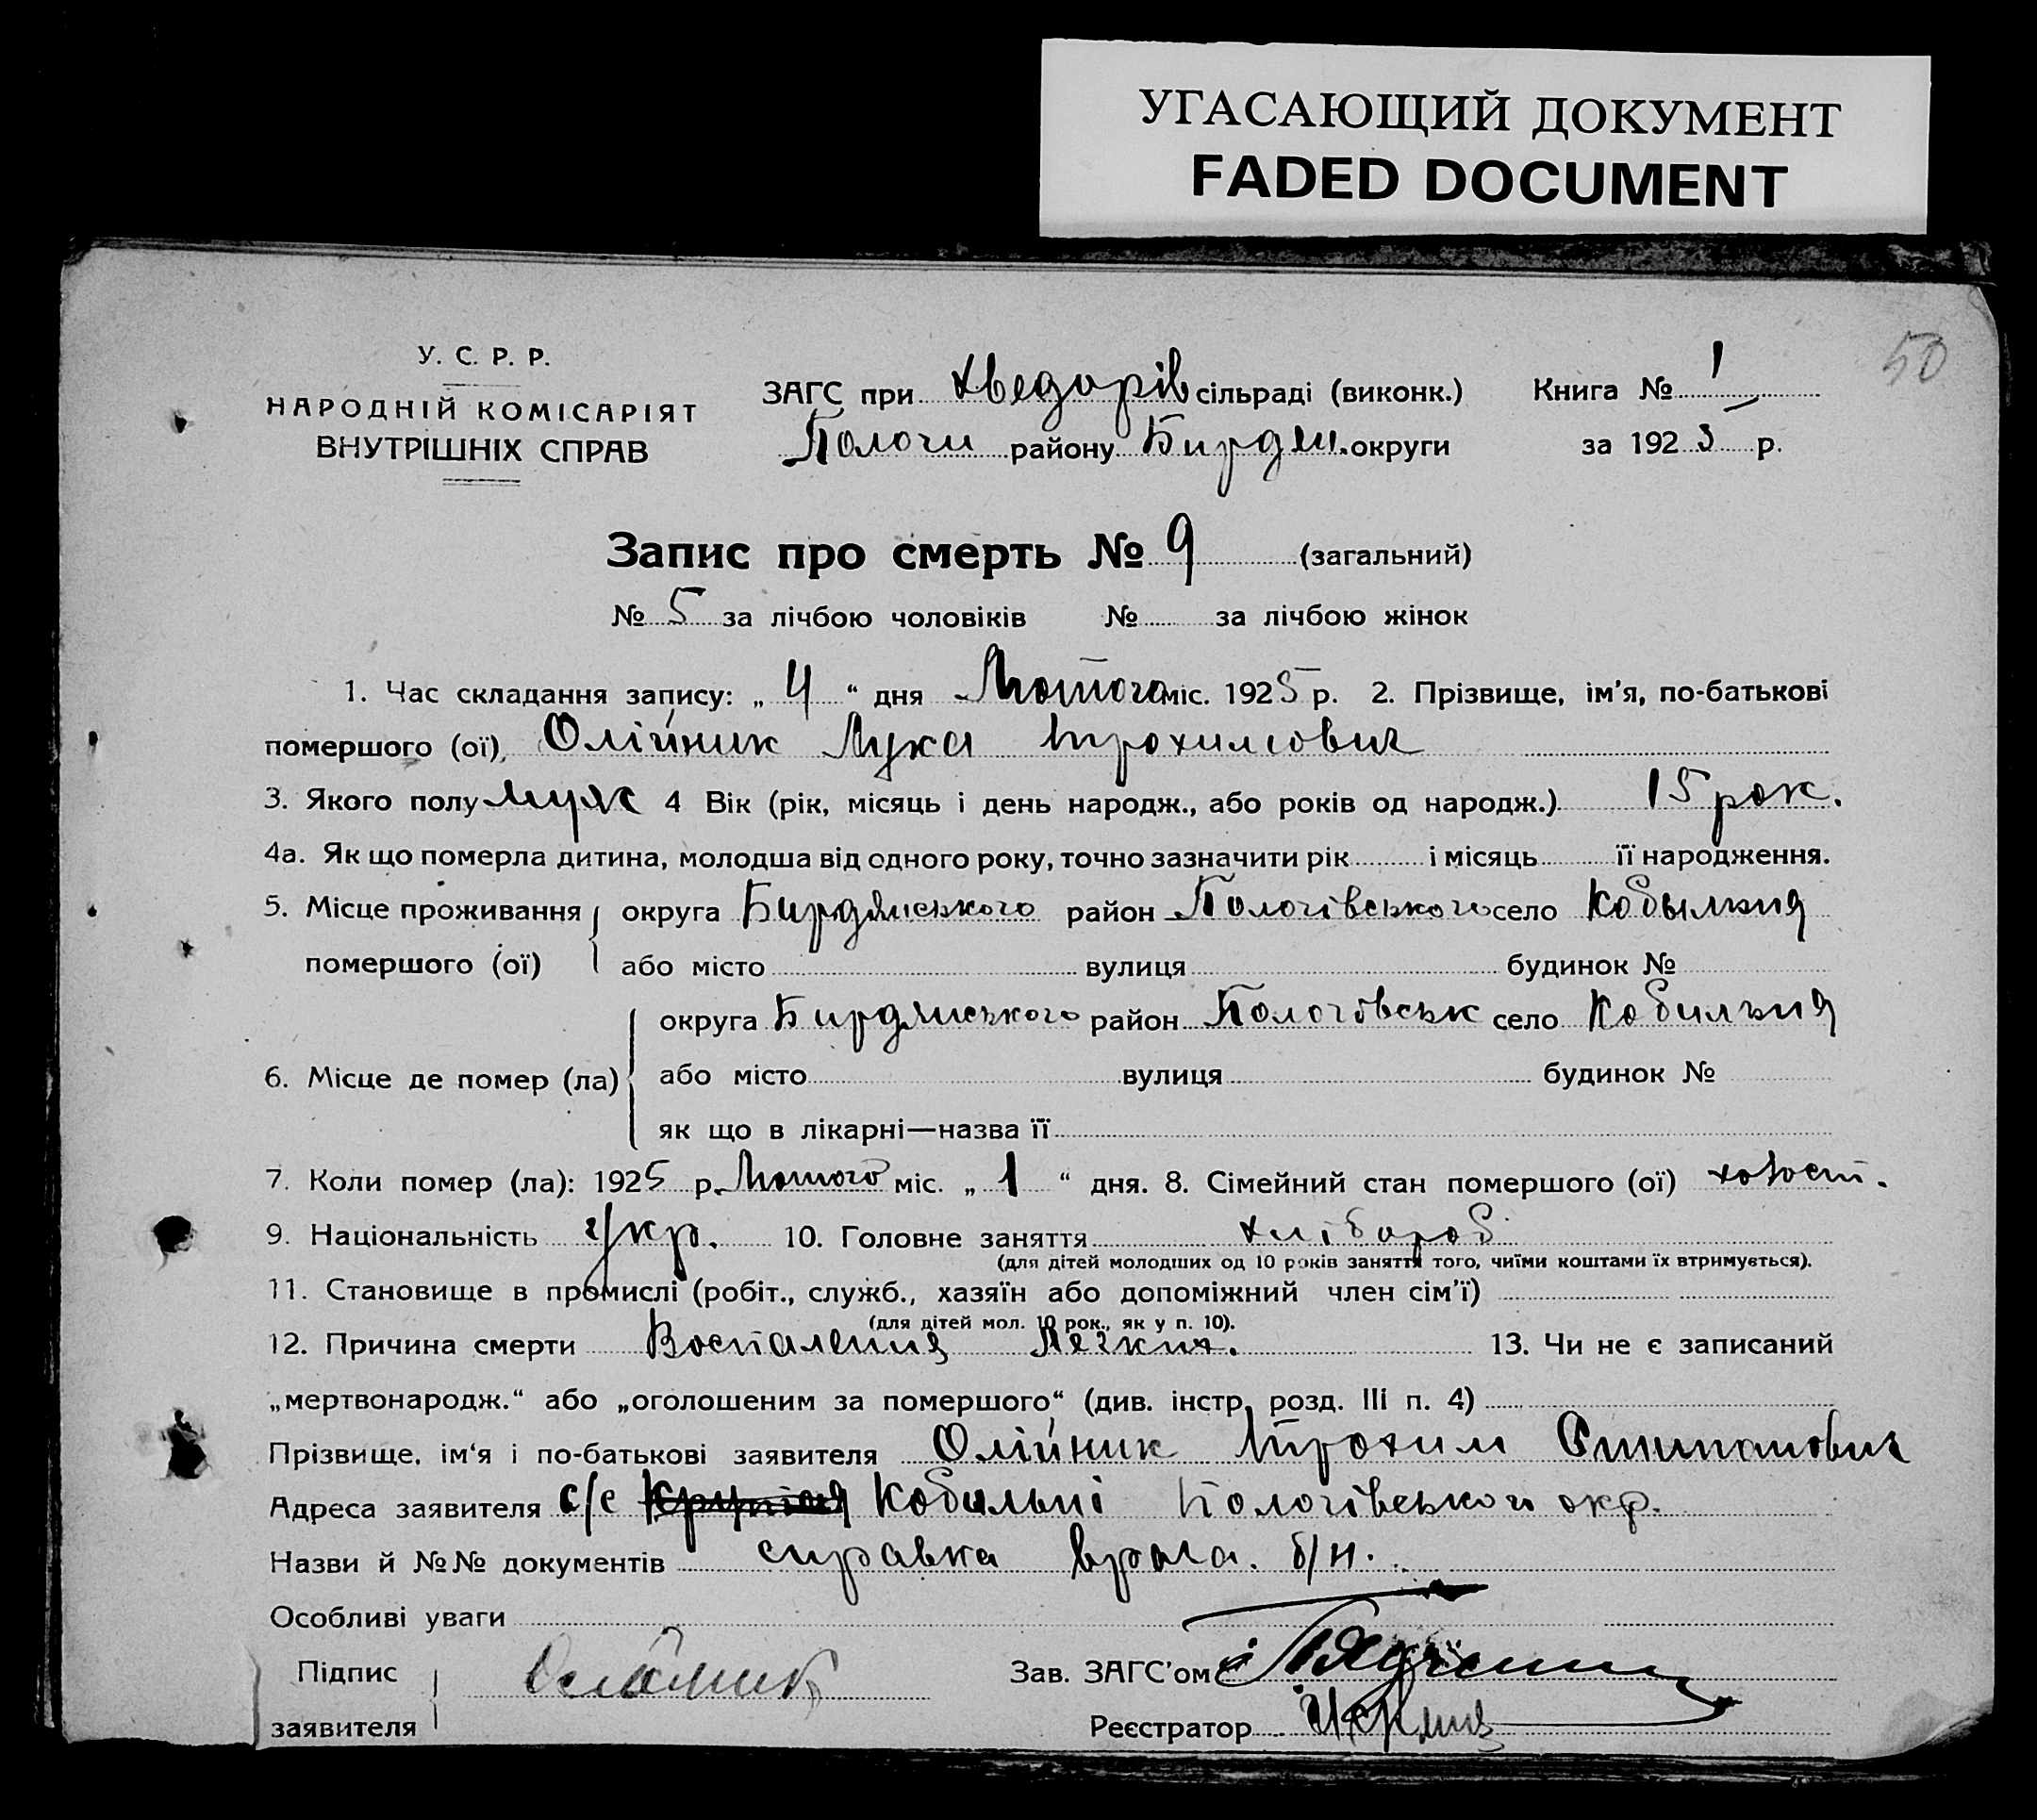 УГАСАЮЩИЙ ДОКУМЕНТ
FADED DOCUMENT
50
У. С. Р. Р.
НАРОДНІЙ КОМІСАРІЯТ
ВНУТРІШНІХ СПРАВ
ЗАГС при Хведорів сільраді (виконк.)
Пологи району Бирдян. округи
Книга № 1
за 1925 р.
Запис про смерть № 9 (загальний)
№ 5 за лічбою чоловіків № за лічбою жінок
1. Час складання запису: „ 4 “ дня Лютого міс. 1925 р. 2. Прізвище, ім'я, по-батькові
помершого (ої) Олійник Лука Трохимович
3. Якого полу муж 4 Вік (рік, місяць і день народж., або років од народж.) 15 рок.
4а. Як що померла дитина, молодша від одного року, точно зазначити рік і місяць її народження.
5. Місце проживання округа Бирдянського район Пологівського село Кобылкия
помершого (ої) або місто вулиця будинок №
округа Бирдянського район Пологівськ село
6. Місце де помер (ла) або місто вулиця будинок №
як що в лікарні—назва її
7. Коли помер (ла): 1925 р. Лютого міс. „ 1 “ дня. 8. Сімейний стан помершого (ої) холост.
9. Національність Укр. 10. Головне заняття хлібороб
(для дітей молодших од 10 років заняття того, чиїми коштами їх втримується).
11. Становище в промислі (робіт., служб., хазяїн або допоміжний член сім'ї)
(для дітей мол. 10 рок., як у п. 10).
12. Причина смерти Воспаления Легких. 13. Чи не є записаний
„мертвонародж.“ або „оголошеним за помершого“ (див. інстр. розд. III п. 4)
Прізвище, ім'я і по-батькові заявителя Олійник Трохим Стипанович
Адреса заявителя с/с Кобильні Пологівського окр.
Назви й №№ документів справка врача. б/н.
Особливі уваги
Підпис
заявителя Олійник
Зав. ЗАГС'ом
Реєстратор